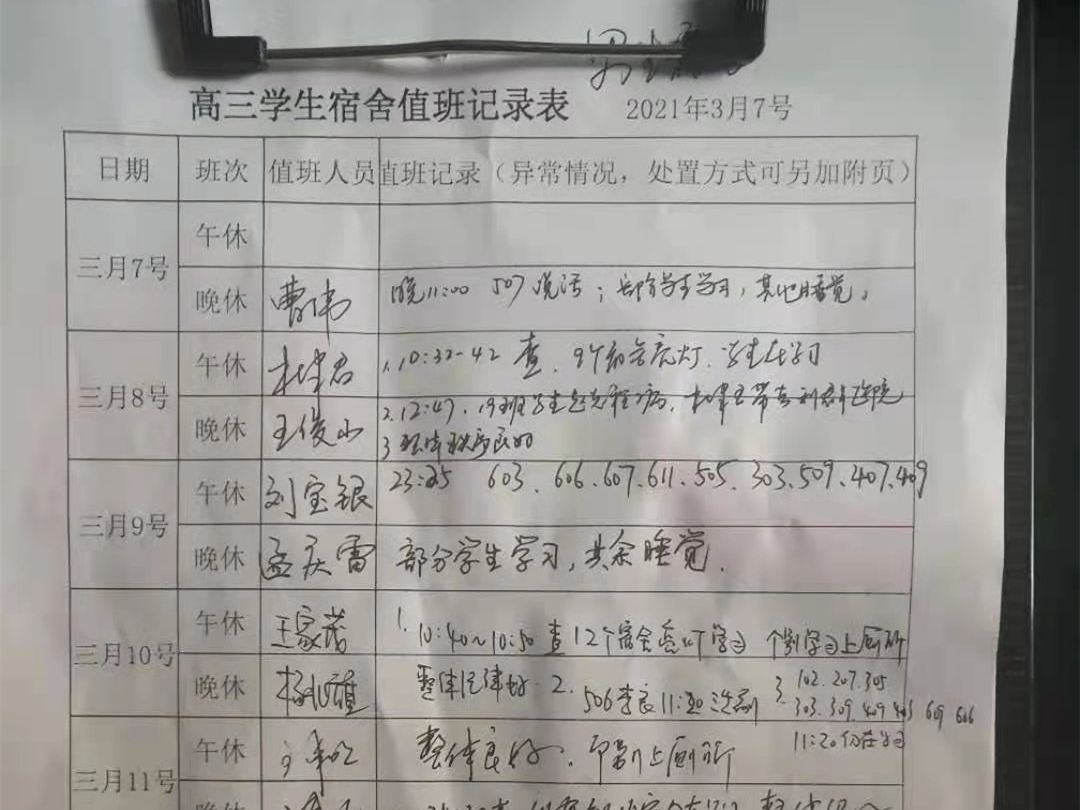 高三学生宿舍值班记录表 2021年3月7号
日期 班次 值班人员 值班记录（异常情况，处置方式可另加附页）
三月7号 午休
晚休 曹伟 晚11:00 507说话；部分学生学习，其他睡觉。
三月8号 午休 杜肇君 1.10:32-42 查、9个宿舍亮灯、学生在学习
晚休 王俊山 2.12:47、19班学生
3 整体秩序良好
三月9号 午休 刘宝银 23:25 603、606、607、611、505、303、509、407、409
晚休 孟庆雷 部分学生学习，其余睡觉.
三月10号 午休 王家 1. 10:40~10:50 查12个宿舍亮灯学习 个别学习上厕所
晚休 杨 整体纪律好. 2. 506李良11: 洗 3. 102. 207. 305
303. 309. 409 403 609 606
11:20仍在学习
三月11号 午休 整体良好、个别上厕所
晚休